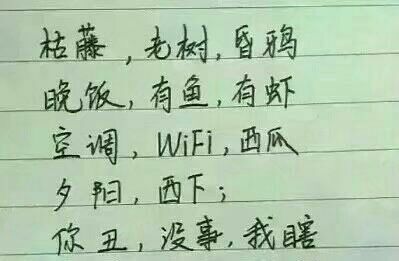 枯藤，老树，昏鸦
晚饭，有鱼，有虾
空调，WiFi，西瓜
夕阳，西下；
你丑，没事，我瞎